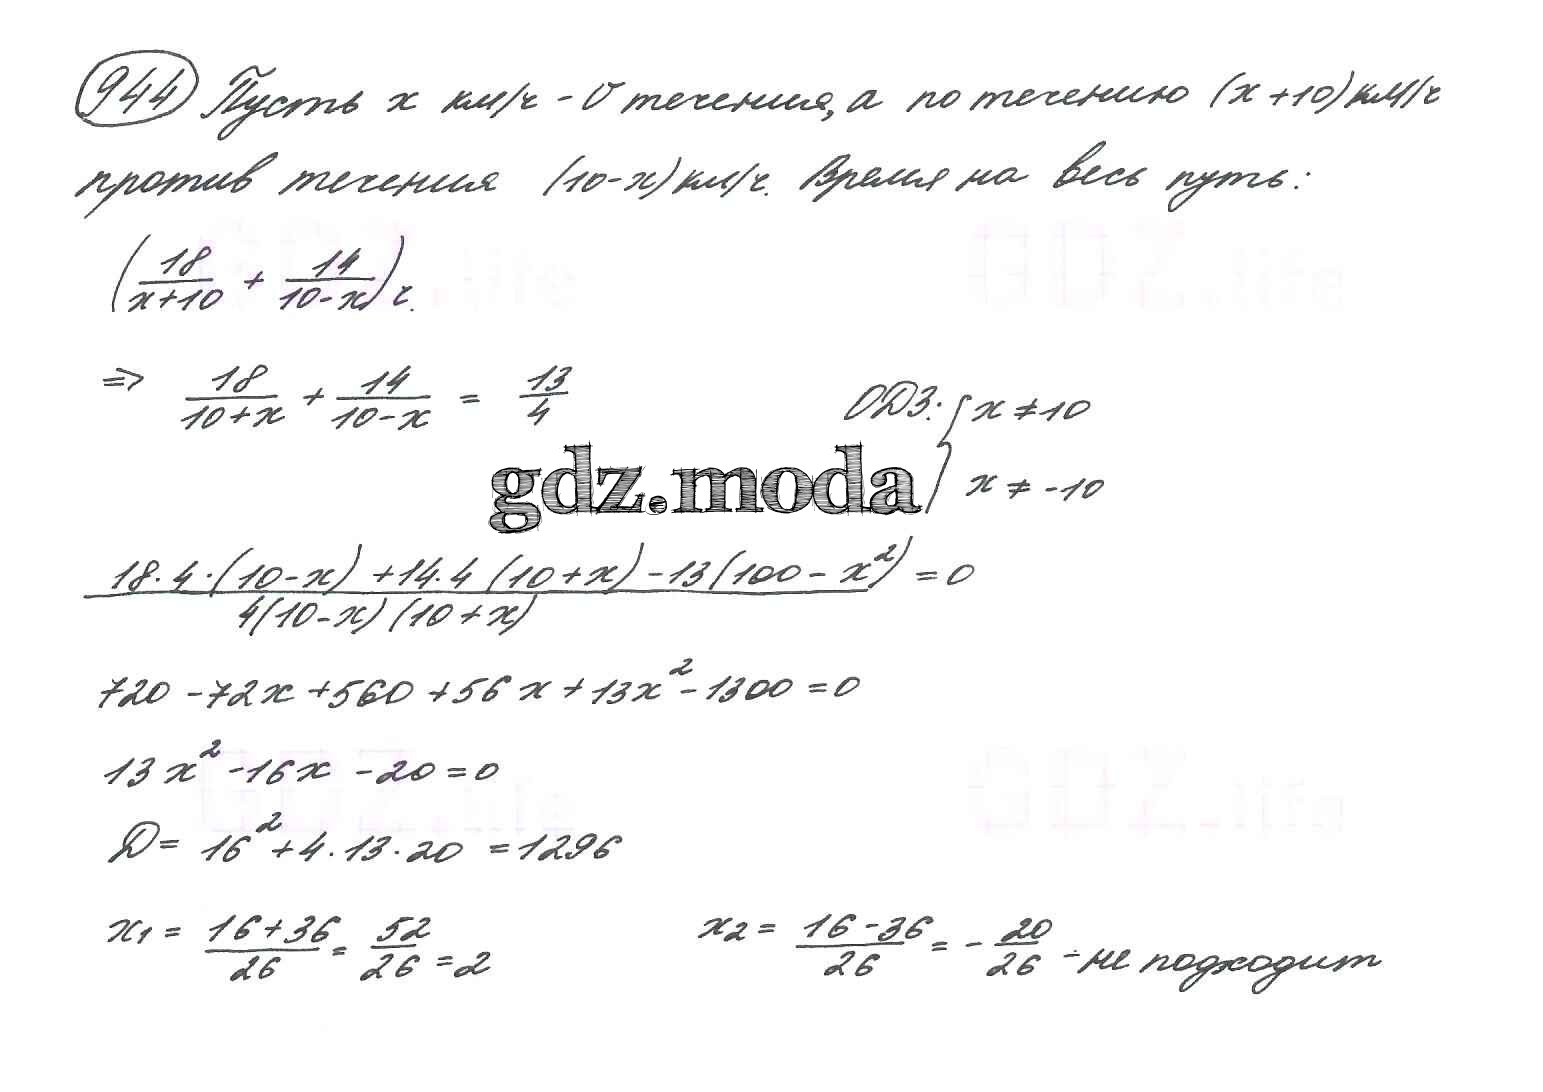 944 Пусть x км/ч - V течения, а по течению (x+10) км/ч
против течения (10-x) км/ч. Время на весь путь:
(18/(x+10) + 14/(10-x)) ч.
GDZ.life GDZ.life
=> 18/(10+x) + 14/(10-x) = 13/4 ОДЗ: { x ≠ 10
x ≠ -10
gdz.moda
(18·4·(10-x) + 14·4(10+x) - 13(100-x²))/(4(10-x)(10+x)) = 0
720 - 72x + 560 + 56x + 13x² - 1300 = 0
13x² - 16x - 20 = 0
GDZ.life GDZ.life
D = 16² + 4·13·20 = 1296
x₁ = (16+36)/26 = 52/26 = 2 x₂ = (16-36)/26 = -20/26 - не подходит